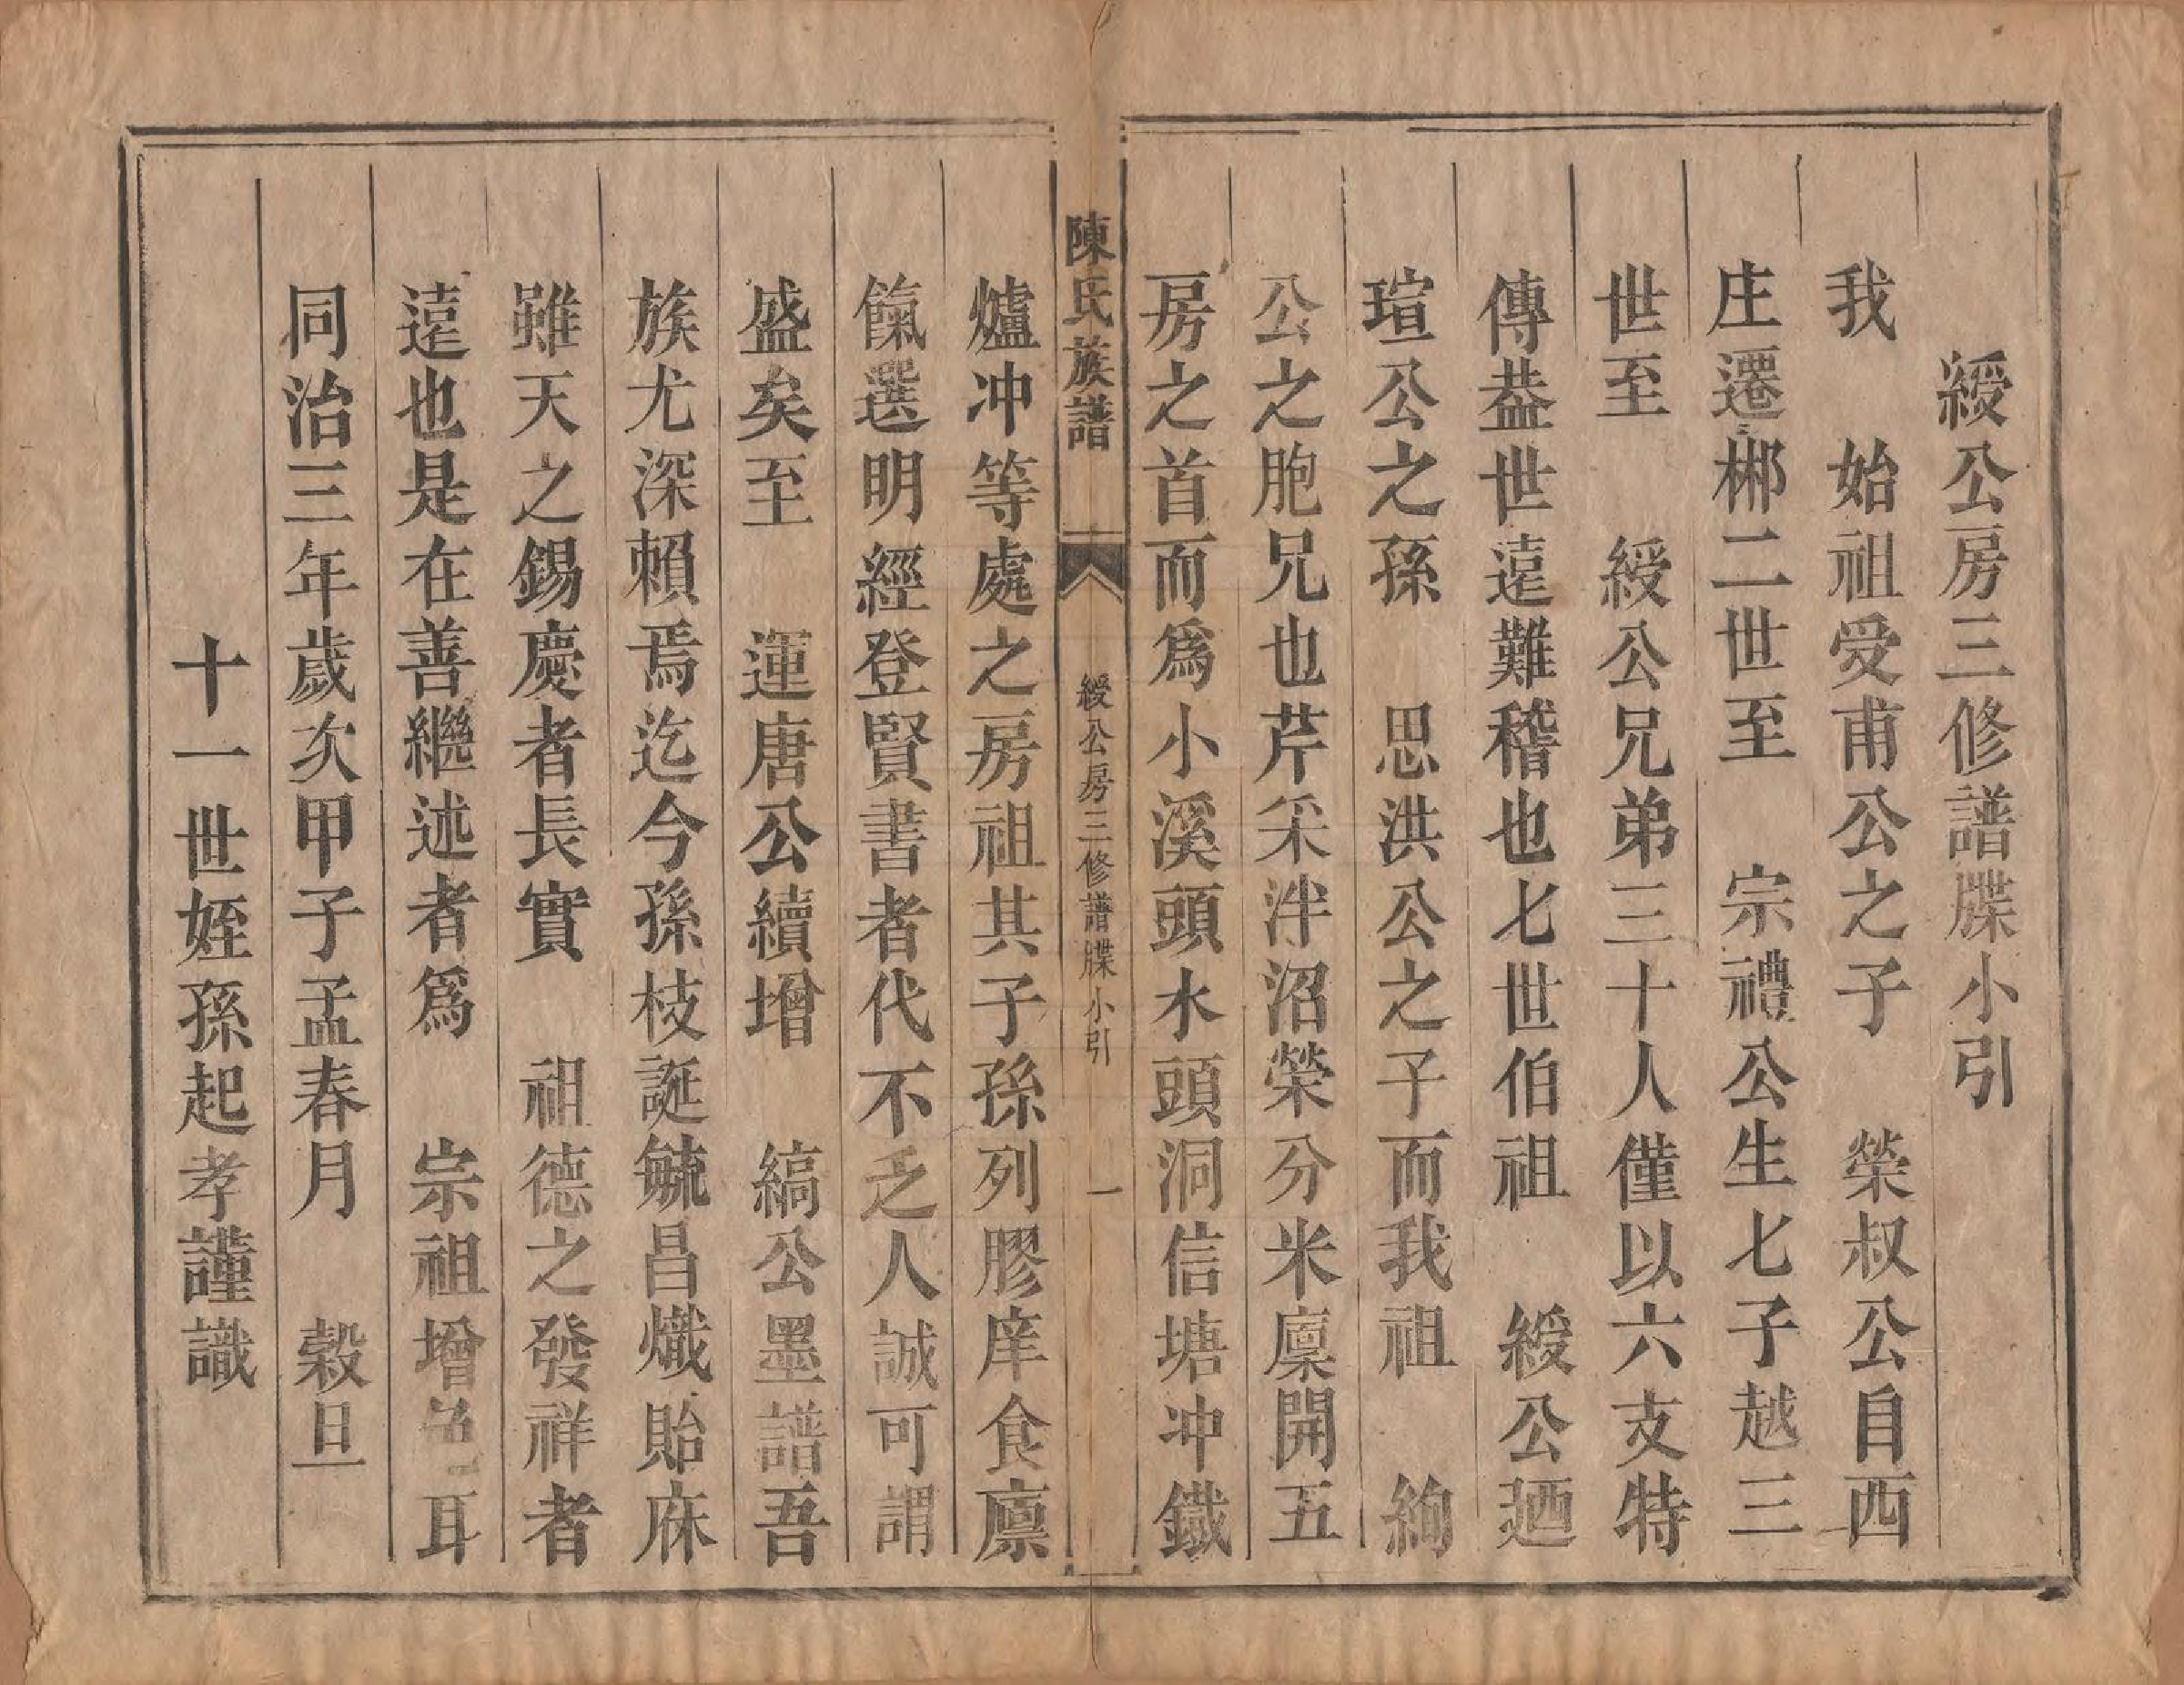 綬公房三修譜牒小引
我　始祖受甫公之子　榮叔公自西
庄遷郴二世至　宗禮公生七子越三
世至　綬公兄弟三十人僅以六支特
傳葢世遠難稽也七世伯祖　綬公廼
瑄公之孫　思洪公之子而我祖　絢
公之胞兄也芹采泮沼榮分米廩開五
房之首而爲小溪頭水頭洞信塘冲鐵
陳氏族譜　綬公房三修譜牒小引　一
爐冲等處之房祖其子孫列膠庠食廪
餼選明經登賢書者代不乏人誠可謂
盛矣至　運唐公續增　縞公墨譜吾
族尤深賴焉迄今孫枝誕毓昌熾貽庥
雖天之錫慶者長實　祖德之發祥者
遠也是在善繼述者爲　宗祖增色耳
同治三年歲次甲子孟春月　穀旦
十一世姪孫起孝謹識